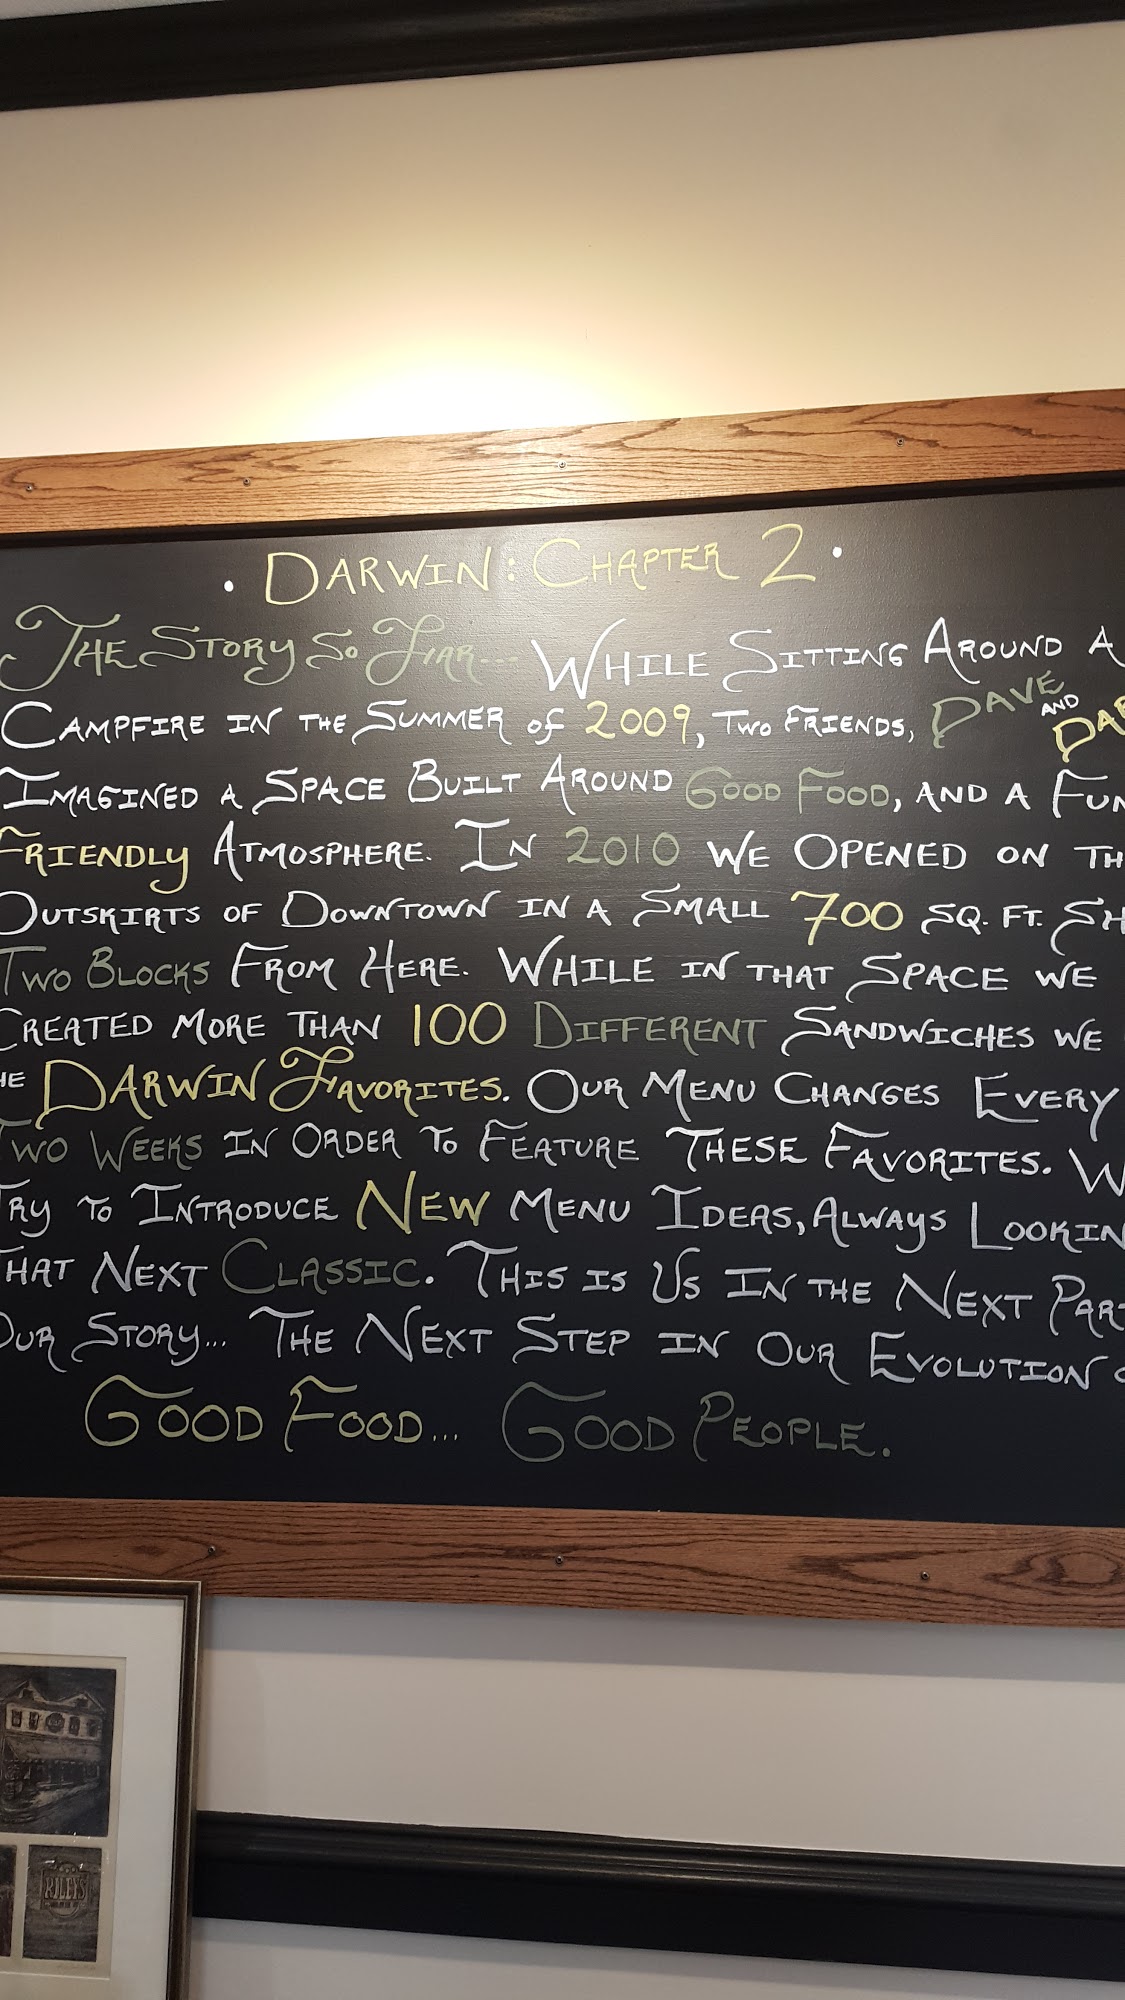 • Darwin: Chapter 2 •
The Story So Far... While Sitting Around A
Campfire in the Summer of 2009, Two Friends, Dave and
Imagined a Space Built Around Good Food, and a Fun
Friendly Atmosphere. In 2010 we opened on the
Outskirts of Downtown in a Small 700 sq. ft.
Two Blocks From Here. While in that Space we
Created more than 100 Different Sandwiches we
Darwin Favorites. Our Menu Changes Every
Two Weeks in Order to Feature These Favorites.
Try to Introduce New Menu Ideas, Always Lookin
That Next Classic. This is Us In the Next Part
Our Story... The Next Step in Our Evolution
Good Food... Good People.
RILEY'S